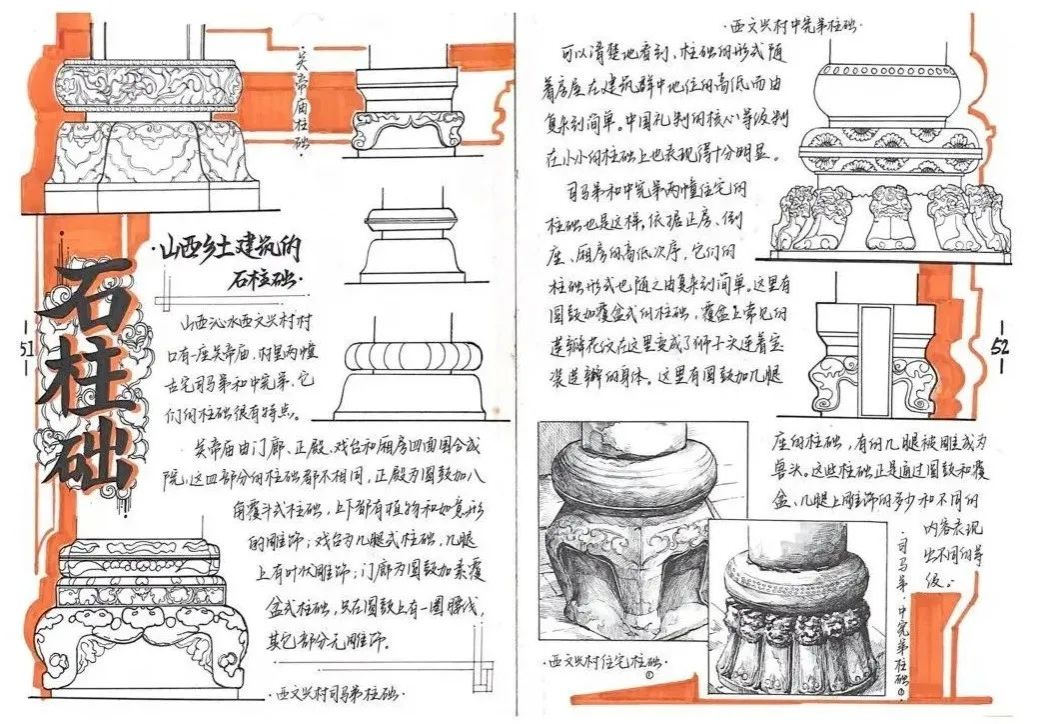 ·关帝庙柱础·
·山西乡土建筑的
石柱础·
石柱础
51
山西沁水西文兴村村
口有一座关帝庙，村里两幢
古宅司马第和中宪第，它
们的柱础很有特点。
关帝庙由门廊、正殿、戏台和厢房四面围合成
院，这四部分的柱础都不相同，正殿为圆鼓加八
角覆斗式柱础，上下都有植物和如意形
的雕饰；戏台为几腿式柱础，几腿
上有叶状雕饰；门廊为圆鼓加素覆
盆式柱础，只在圆鼓上有一圈腰线，
其它部分无雕饰。
·西文兴村司马第柱础·
·西文兴村中宪第柱础·
可以清楚地看到，柱础的形式随
着房屋在建筑群中地位的高低而由
复杂到简单。中国礼制的核心等级制
在小小的柱础上也表现得十分明显。
司马第和中宪第两幢住宅的
柱础也是这样，依据正房、倒
座、厢房的高低次序，它们的
柱础形式也随之由复杂到简单。这里有
圆鼓加覆盆式的柱础，覆盆上常见的
莲瓣花纹在这里变成了狮子头连着宝
装莲瓣的身体。这里有圆鼓加几腿
52
座的柱础，有的几腿被雕成为
兽头。这些柱础正是通过圆鼓和覆
盆、几腿上雕饰的多少和不同的
内容表现
出不同的等
级。
·西文兴村住宅柱础·
①
·司马第、中宪第柱础①